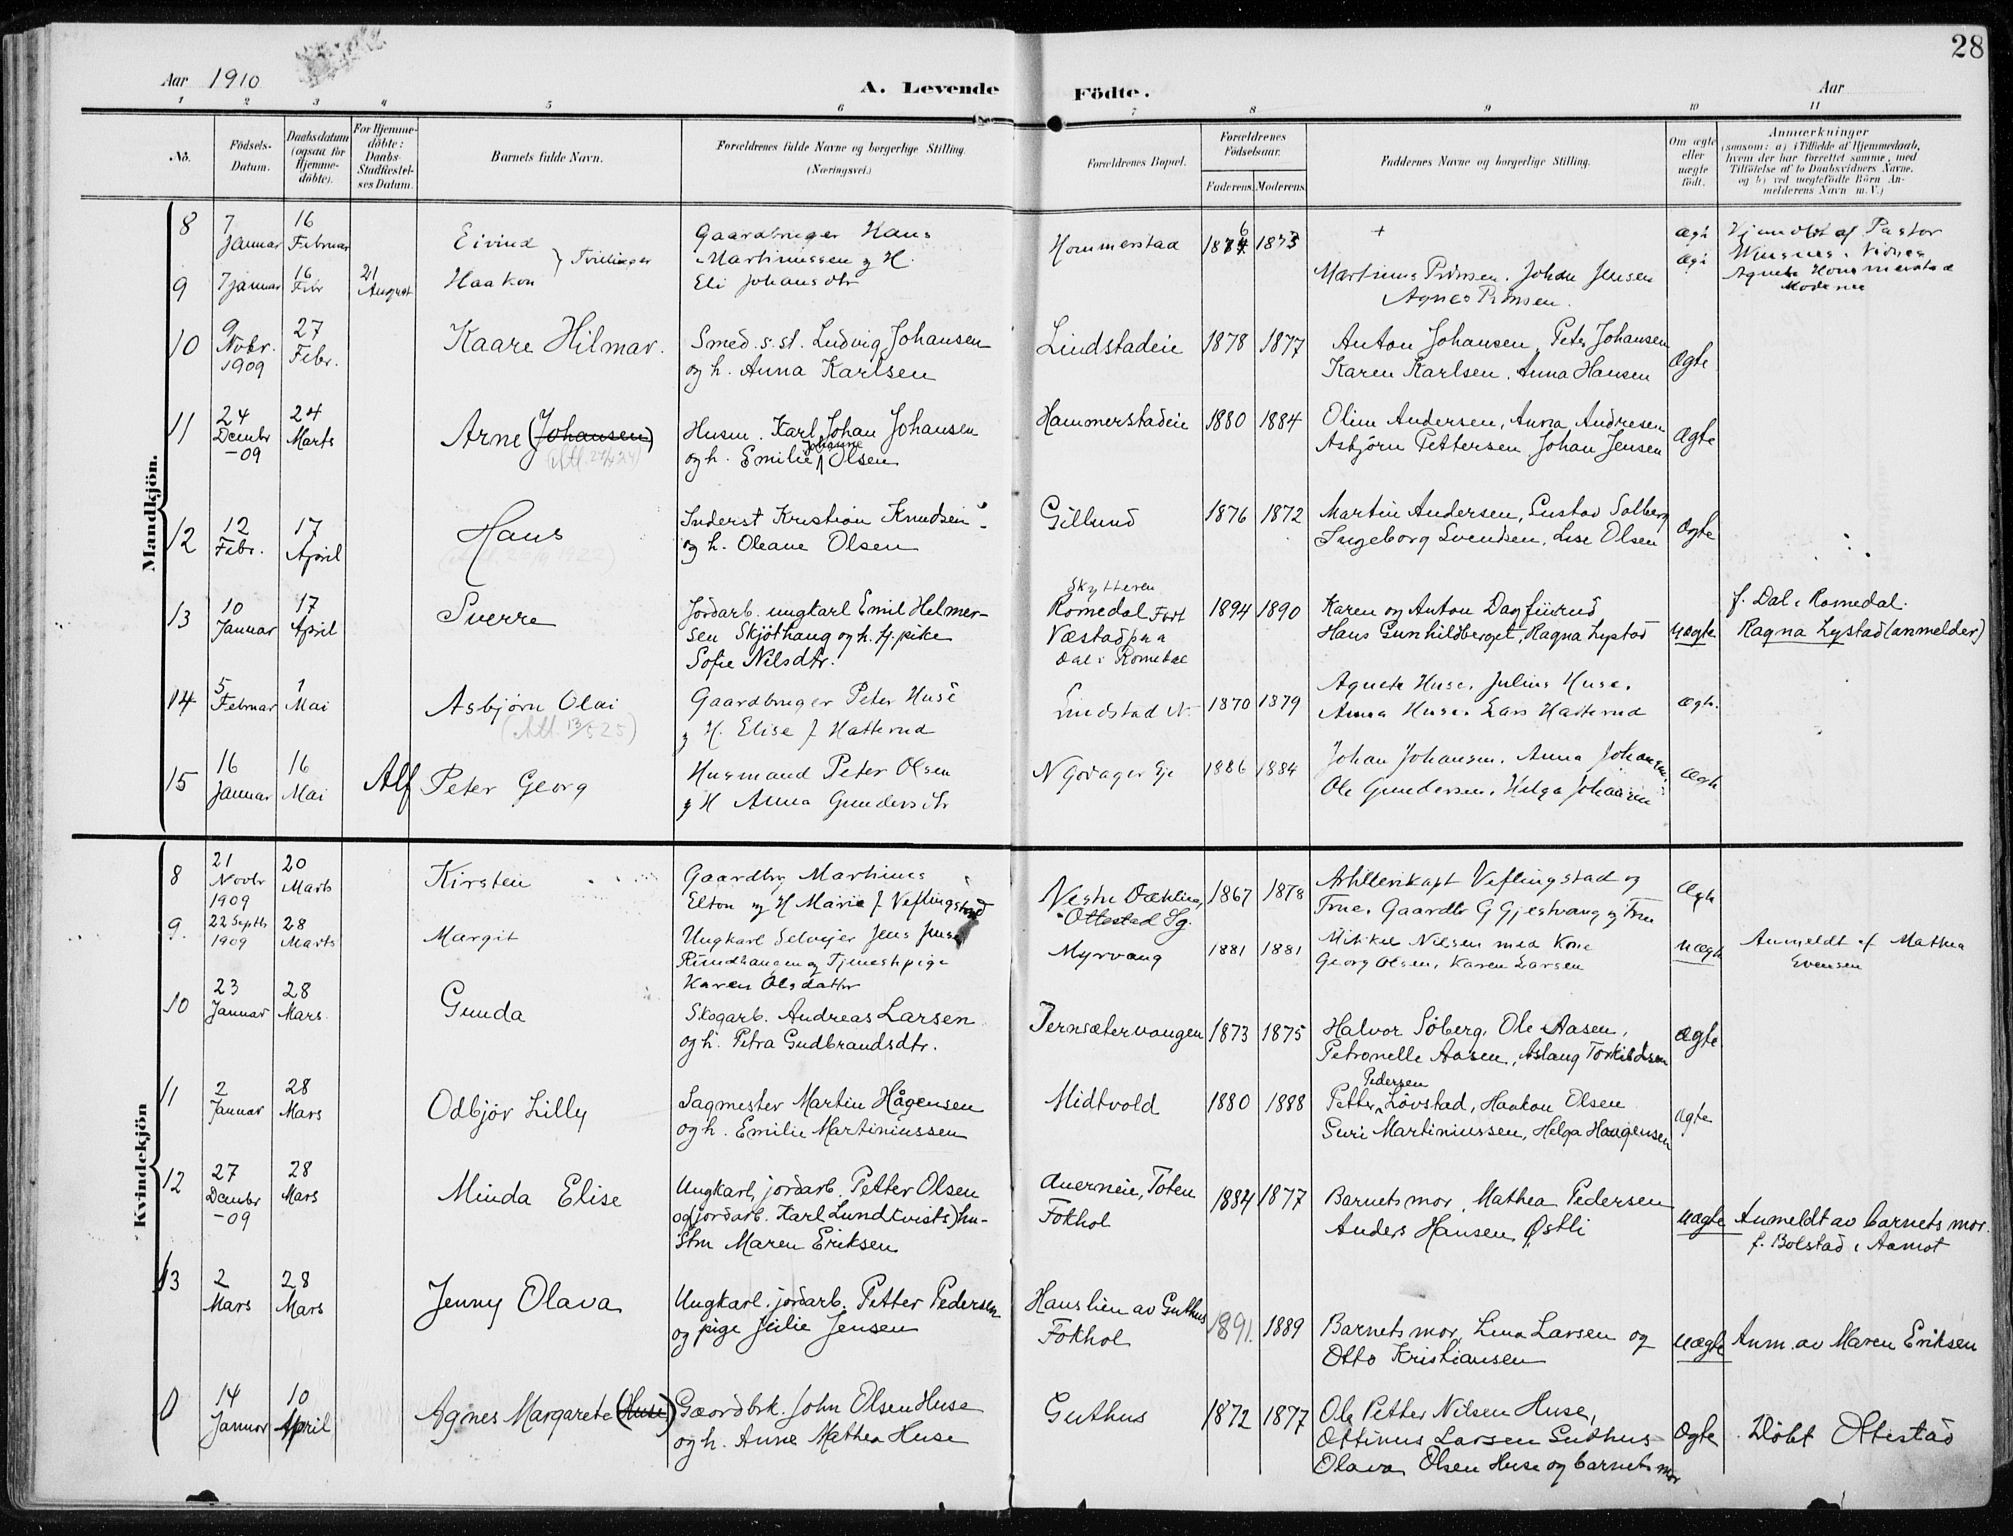 28
Aar 1910
A. Levende Födte.
Aar
1 2 3 4 5 6 7 8 9 10 11
No.
Födsels-
Datum.
Daabsdatum
(ogsaa for
Hjemme-
döbte).
For Hjemme-
döbte:
Daabs-
Stadfæstel-
ses Datum.
Barnets fulde Navn.
Forældrenes fulde Navne og borgerlige Stilling
(Næringsvei.)
Forældrenes Bopæl.
Forældrenes
Födselsaar.
Faderens. Moderens.
Faddernes Navne og borgerlige Stilling.
Om ægte
eller
uægte
födt.
Anmærkninger
(saasom: a) i Tilfælde af Hjemmedaab,
hvem der har forrettet samme, med
Tilföielse af to Daabsvidners Navne.
og b) ved uægtefödte Börn An-
melderens Navn m. V.)
Mandkjön.
8
7
Januar
16
Februar
Eivind
Tvillinger
Gaardbruger Hans
Martinussen og H.
Hommerstad
6
1874 1873
+
Ægt
Hjemdöbt af Pastor
9
7 januar
16
Febr
21
August
Haakon
Eli Johansdtr
Martinus Prinsen. Johan Jensen
Agnes Prinsen.
Ægt
Agnete Hommerstad
Moderen
10
9
Novbr.
1909
27
Febr.
Kaare Hilmar.
Smed. s. st. Ludvig Johansen
og h. Anna Karlsen
Lindstadeie
1878 1877
Anton Johansen, Peter Johansen
Karen Karlsen, Anna Hansen
Ægte
11
24
Decmbr
-09
24
Marts
Arne (Johansen)
Husm. Karl Johan Johansen
Johanne
og h. Emilie Olsen
Hammerstadeie
1880 1884
Olim Andersen, Anna Andresen
Asbjörn Pettersen, Johan Jensen
Ægte
12
12
Febr.
17
April
Hans
Inderst Kristian Knudsen
og h. Oleane Olsen
Gillund
1876 1872
Martin Andersen, Gustav Solberg
Ingeborg Svendsen, Lise Olsen
Ægte
13
10
Januar
17
April
Sverre
Jordarb. ungkarl Emil Helmer-
sen Skjöthaug og h. tj. pike
Sofie Nilsdtr.
Skytteren
Romedal Fort
Væstad paa
Dal i Romedal
1894 1890
Karen og Anton Dagfinrud
Hans Gunhildberget, Ragna Lystad
Uægte
f. Dal i Romedal.
Ragna Lystad (anmelder)
14
5
Februar
1
Mai
Asbjörn Olai
(Att. 13/5 25)
Gaardbruger Peter Huse
og H. Elise f Hatterud
Lindstad N.
1870 1879
Agnete Huse, Julius Huse.
Anna Huse. Lars Hatterud
Ægte.
15
16
Januar
16
Mai
Alf Peter Georg
Husmand Peter Olsen
og H Anna Gundersdtr
N Godager Eje
1886 1884
Johan Johansen, Anna Johansen.
Ole Gundersen, Helga Johansen
Ægte
Kvindekjön
8
21
Novbr
1909
20
Marts
Kirsten
Gaardbrg Martinus
Elton og H Marie f Veflingstad
Nestre Dæhlin,
Ottestad Sg.
1867 1878
Artillerikapt Veflingstad og
Frue. Gaardbr G Gjestvang og Frue
Ægte
9.
22 Septbr
1909
28
Marts
Margit
Ungkarl Selvejer Jens Jensen
Rundhaugen og Tjenestpige
Karen Olsdatter
Myrvang
1881 1881
Mikkel Nilsen med Kone
Georg Olsen, Karen Larsen
Uægte
Anmeldt af Mathea
Evensen
10
23
Januar
28
Mars
Gunda
Skogarb. Andreas Larsen
og h. Petra Gudbrandsdtr.
Jernsætervangen
1873 1875
Halvor Söberg, Ole Aasen,
Petronelle Aasen, Aslaug Torkildsen
Ægte
11
2
Januar
28
Mars
Odbjör Lilly
Sagmester Martin Hågensen
og h. Emilie Martiniussen
Midtvold
1880 1888
Pedersen
Petter Lövstad, Haakon Olsen
Guri Martiniussen, Helga Haagensen
Ægte
12
27
Decmbr
-09
28
Mars
Minda Elise
Ungkarl, jordarb. Petter Olsen
og (jordarb. Karl Lundkvists) hu-
stru Maren Eriksen
Auerneie, Toten
Fokhol
1884 1877
Barnets mor, Mathea Pedersen
Anders Hansen Østli
Uægte
Anmeldt av barnets mor.
f. Bolstad i Aamot
13
2
Mars
28
Mars
Jenny Olava
Ungkarl. jordarb. Petter Pedersen
og pige Julie Jensen
Hanslien av Guthus
Fokhol
1891. 1889
Barnets mor, Lina Larsen og
Otto Kristiansen
Uægte
Anm. av Maren Eriksen
0
14
Januar
10
April
Agnes Margarete (Huse)
Gaardbrk. John Olsen Huse
og h. Anne Mathea Huse
Guthus
1872 1877
Ole Petter Nilsen Huse,
Ottinus Larsen Guthus
Olava Olsen Huse og barnets mor
Ægte
Döbt Ottestad